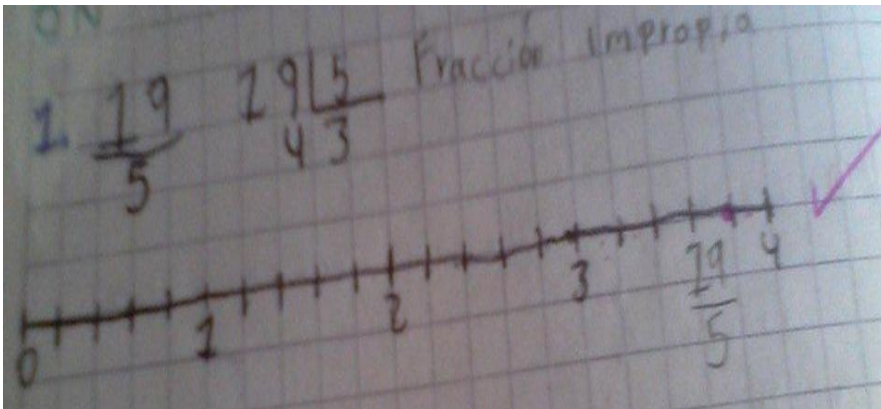 ON
1. 19/5 19 5 Fracción Impropia
4 3
0 1 2 3 19/5 4